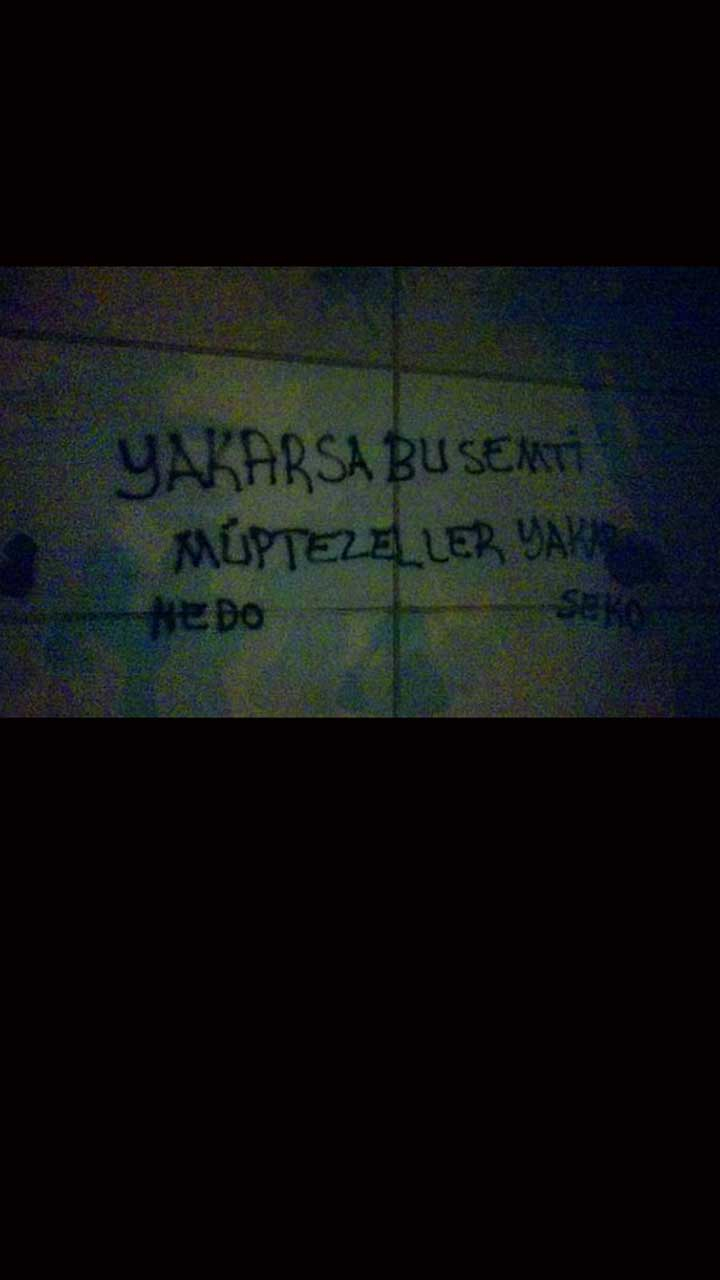 YAKARSA BU SEMTİ
MÜPTEZELLER YAKAR
NEDO SEKO